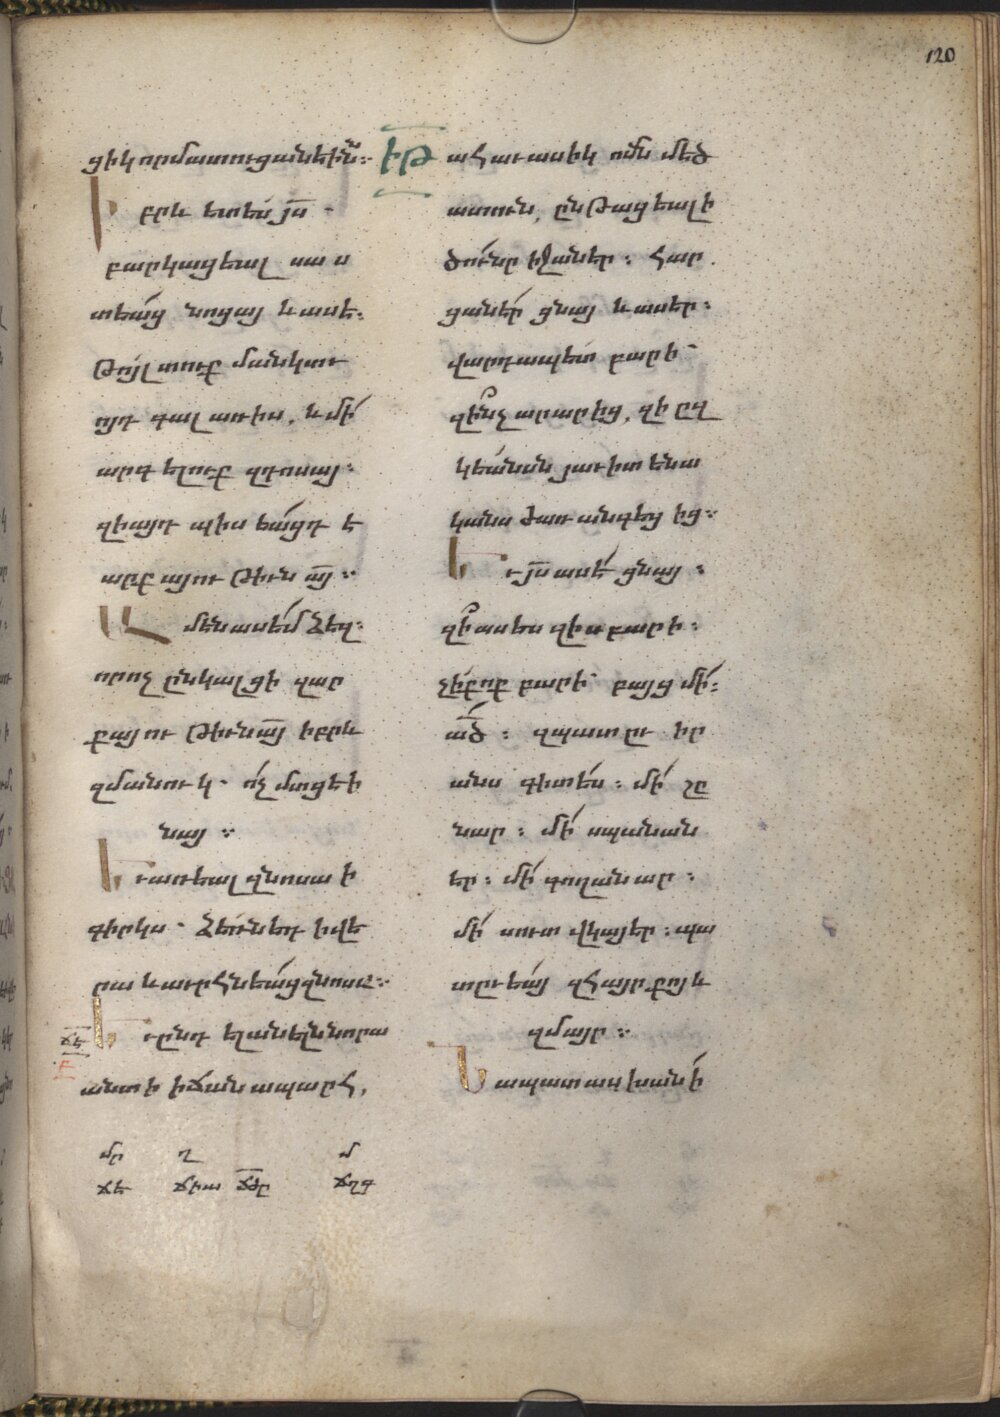 120
ցիկ որ մատուցանեին։
Իբրև ետես յս՝
բարկացեալ սաս
տեաց նոցայ և ասե.
Թոյլ տուք մանկտւ
ոյդ գալ առ իս, և մի՛
արգելուք զդոսայ.
զի այդ պիսեացդ է
արքայութիւն այ։
Ամեն ասեմ ձեզ.
որ ոչ ընկալցի զար
քայութիւն այ իբրև
զմանուկ՝ ոչ մտցէ ի
նայ։
Եւ առեալ զնոսա ի
գիրկս՝ ձեռն եդ ի վե
րա և աւրհնեաց զնոսա։
ճե
Եւ ընդ ելանելն նորա
անտի ի ճանապարհ,
մր ղ մ
ճե ճիա ճծը ճղգ
իթ
ահաւասիկ ոմն մեծ
ատուն, ընթացեալ ի
ծունր իջաներ։ հար
ցաներ ցնայ և ասեր։
վարդապետ բարի՝
զի՞նչ արարից, զի ըզ
կեանսն յաւիտենա
կանս ժառանգեցից։
Եւ յս ասէ ցնայ։
զի՞ ասես զիս բարի։
չիք ոք բարի՝ բայց մի՛։
ած։ զպատըւ իր
անս գիտես։ մի՛ շը
նար։ մի՛ սպանան
եր։ մի՛ գողանար։
մի՛ սուտ վկայեր։ պա
տըւեայ զհայր քոյ և
զմայր։
Նա պատասխանի